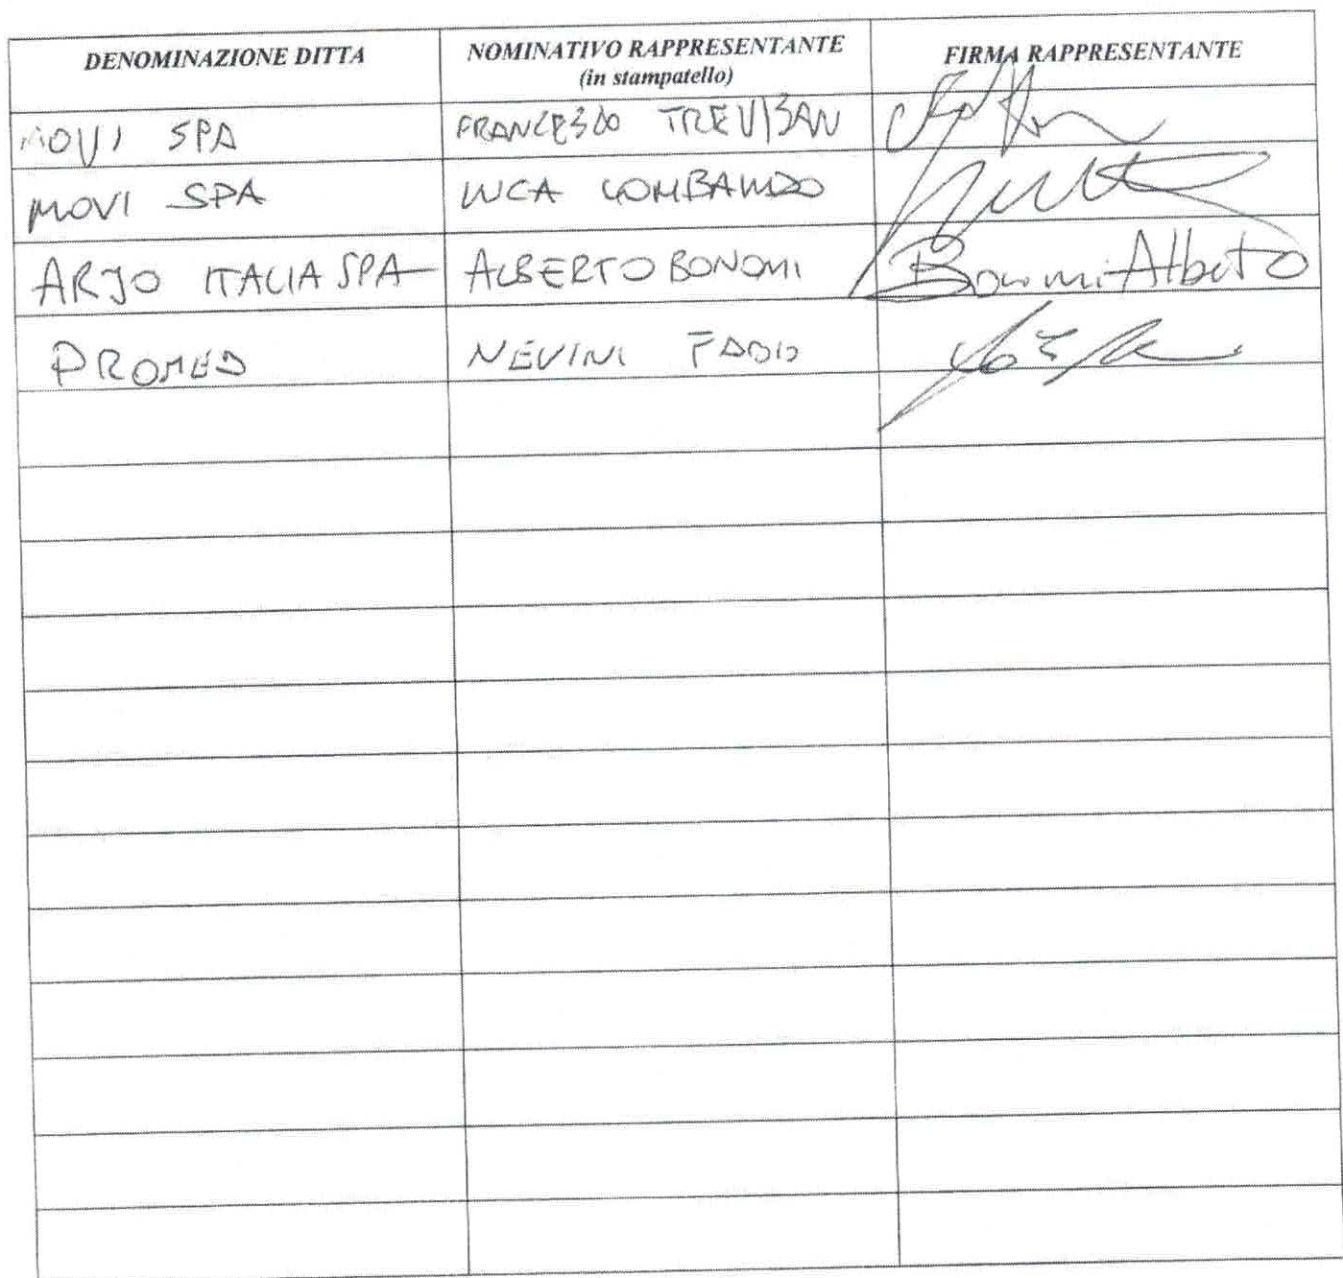 DENOMINAZIONE DITTA NOMINATIVO RAPPRESENTANTE FIRMA RAPPRESENTANTE
(in stampatello)
MOVI SPA FRANCESCO TREVISAN
MOVI SPA LUCA LOMBARDO
ARJO ITALIA SPA ALBERTO BONOMI Bonomi Alberto
PROMED NEVINI FABIO